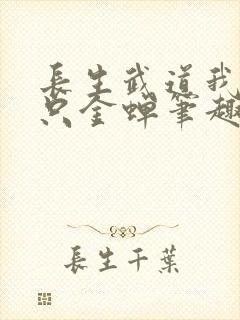 長生武道我
只金蟬筆趣
長生千葉